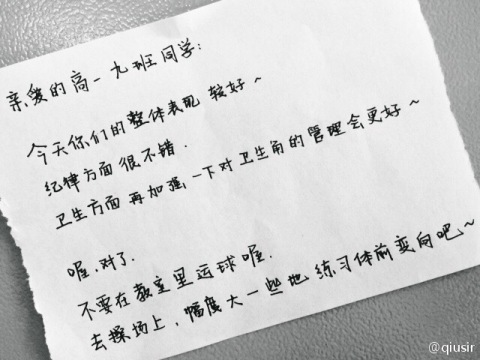 亲爱的高一九班同学:
今天你们的整体表现 较好~
纪律方面很不错.
卫生方面再加强一下对卫生角的管理会更好~
喔.对了.
不要在教室里运球喔.
去操场上,幅度大一些地 练习体前变向吧~
@qiusir